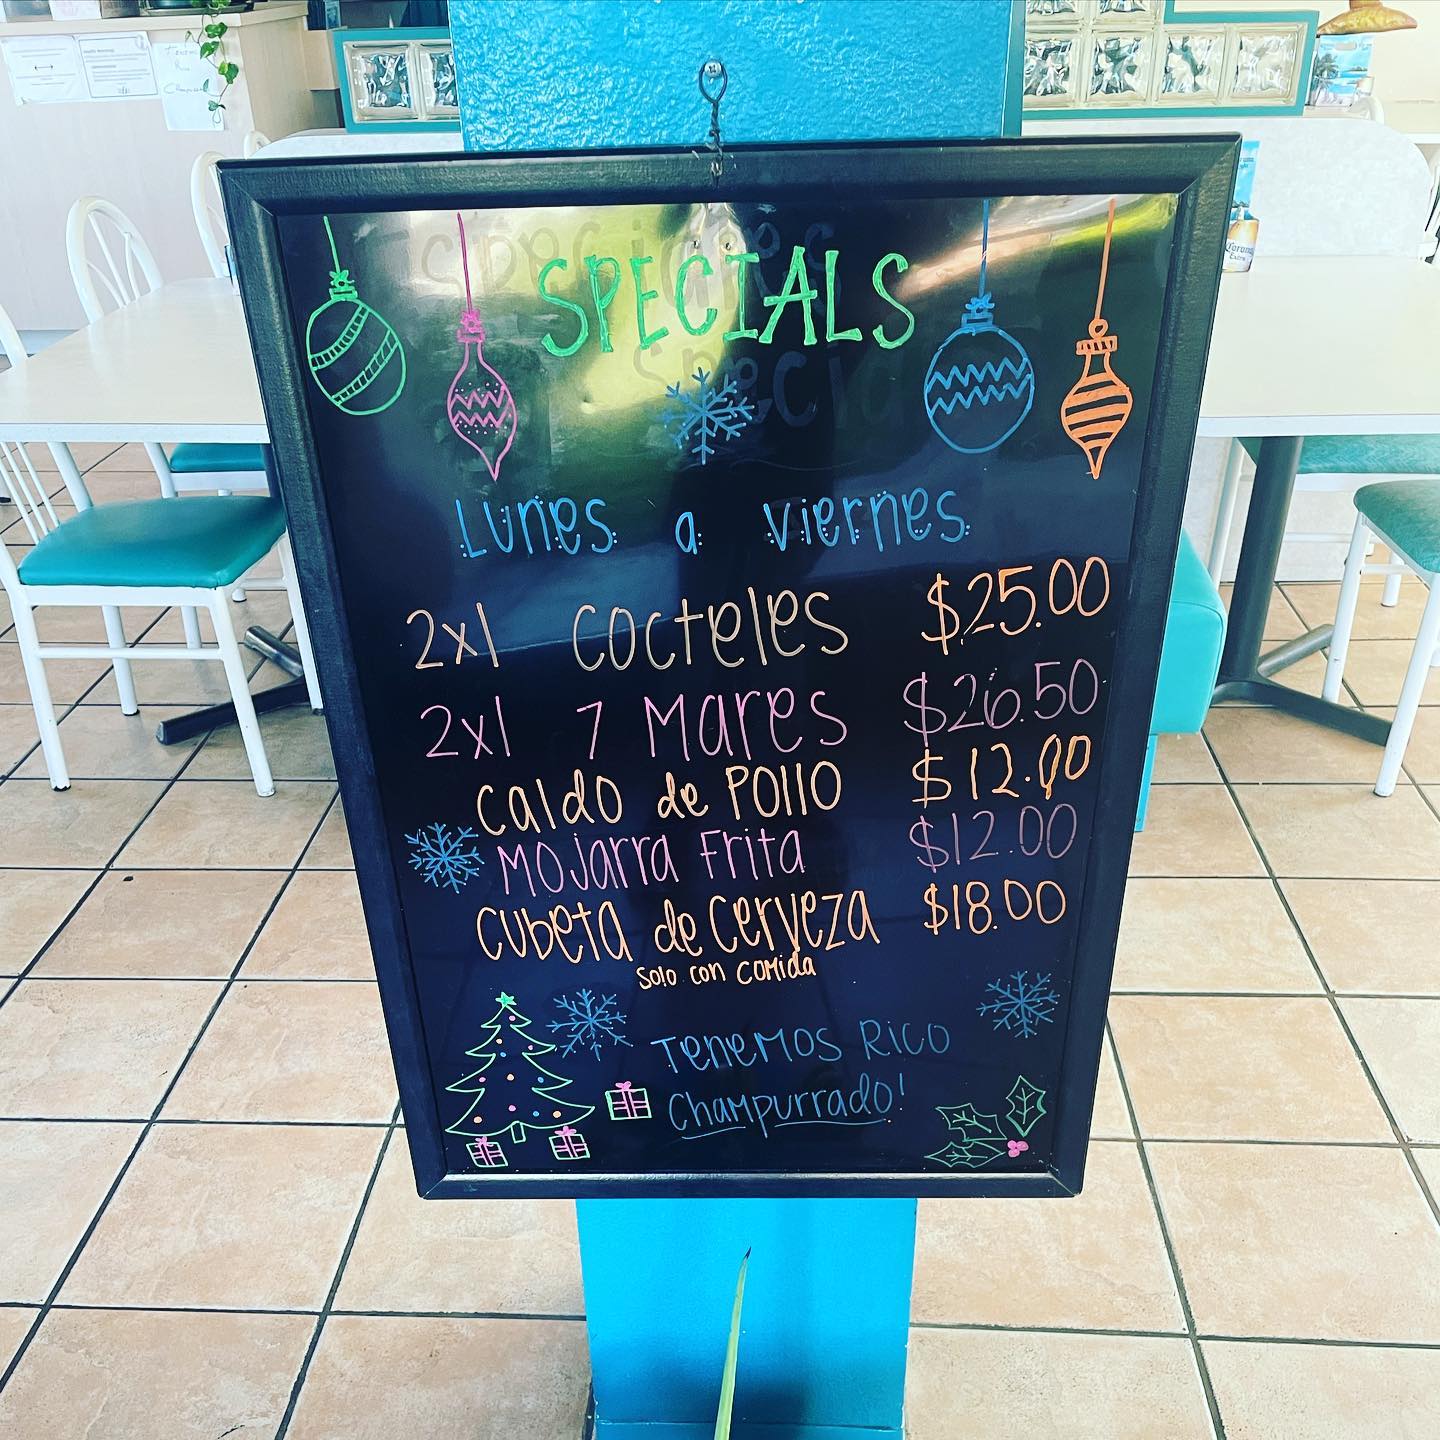 SPECIALS
Lunes a Viernes
2x1 Cocteles $25.00
2x1 7 Mares $26.50
Caldo de Pollo $12.00
Mojarra Frita $12.00
Cubeta de Cerveza $18.00
Solo con comida
Tenemos Rico
Champurrado!
Corona
Extra